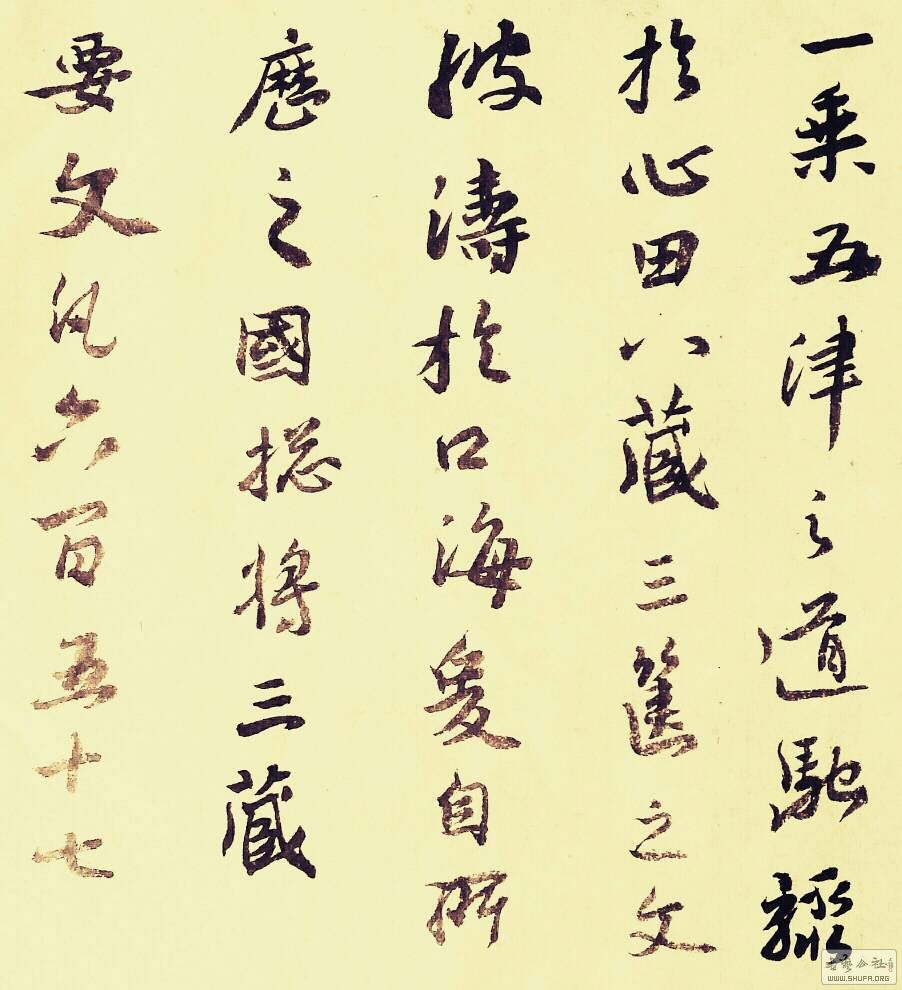 一乘五律之道馳驟
於心田八藏三篋之文
波濤於口海爰自所
歷之國揔將三藏
要文凡六百五十七
WWW.SHUFA.ORG